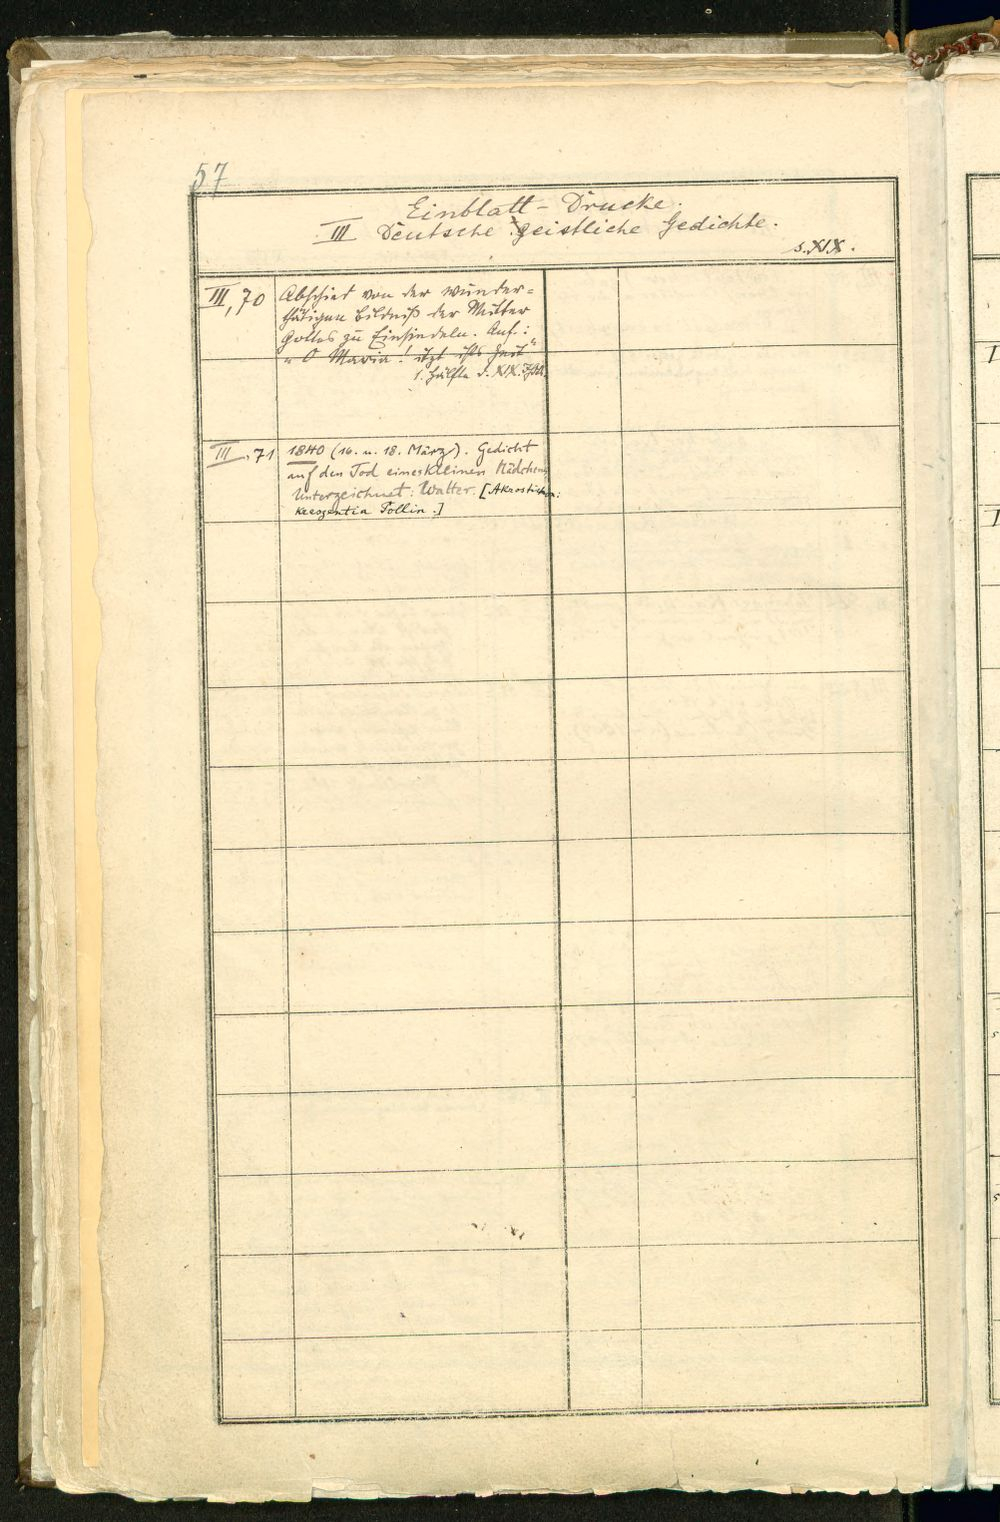 57
Einblatt-Drucke.
III Deutsche geistliche Gedichte.
s. XIX.
III, 70 Abschied von der wunder=
thätigen Bildniß der Mutter
Gottes zu Einsiedeln. Anf.:
"O Maria! itzt ists Zeit"
1. Hälfte d. XIX. Jhdt.
III, 71 1840 (16. u. 18. März). Gedicht
auf den Tod eines kleinen Mädchens
Unterzeichnet: Walter. [Akrostichon:
Kreszentia Pollin.]